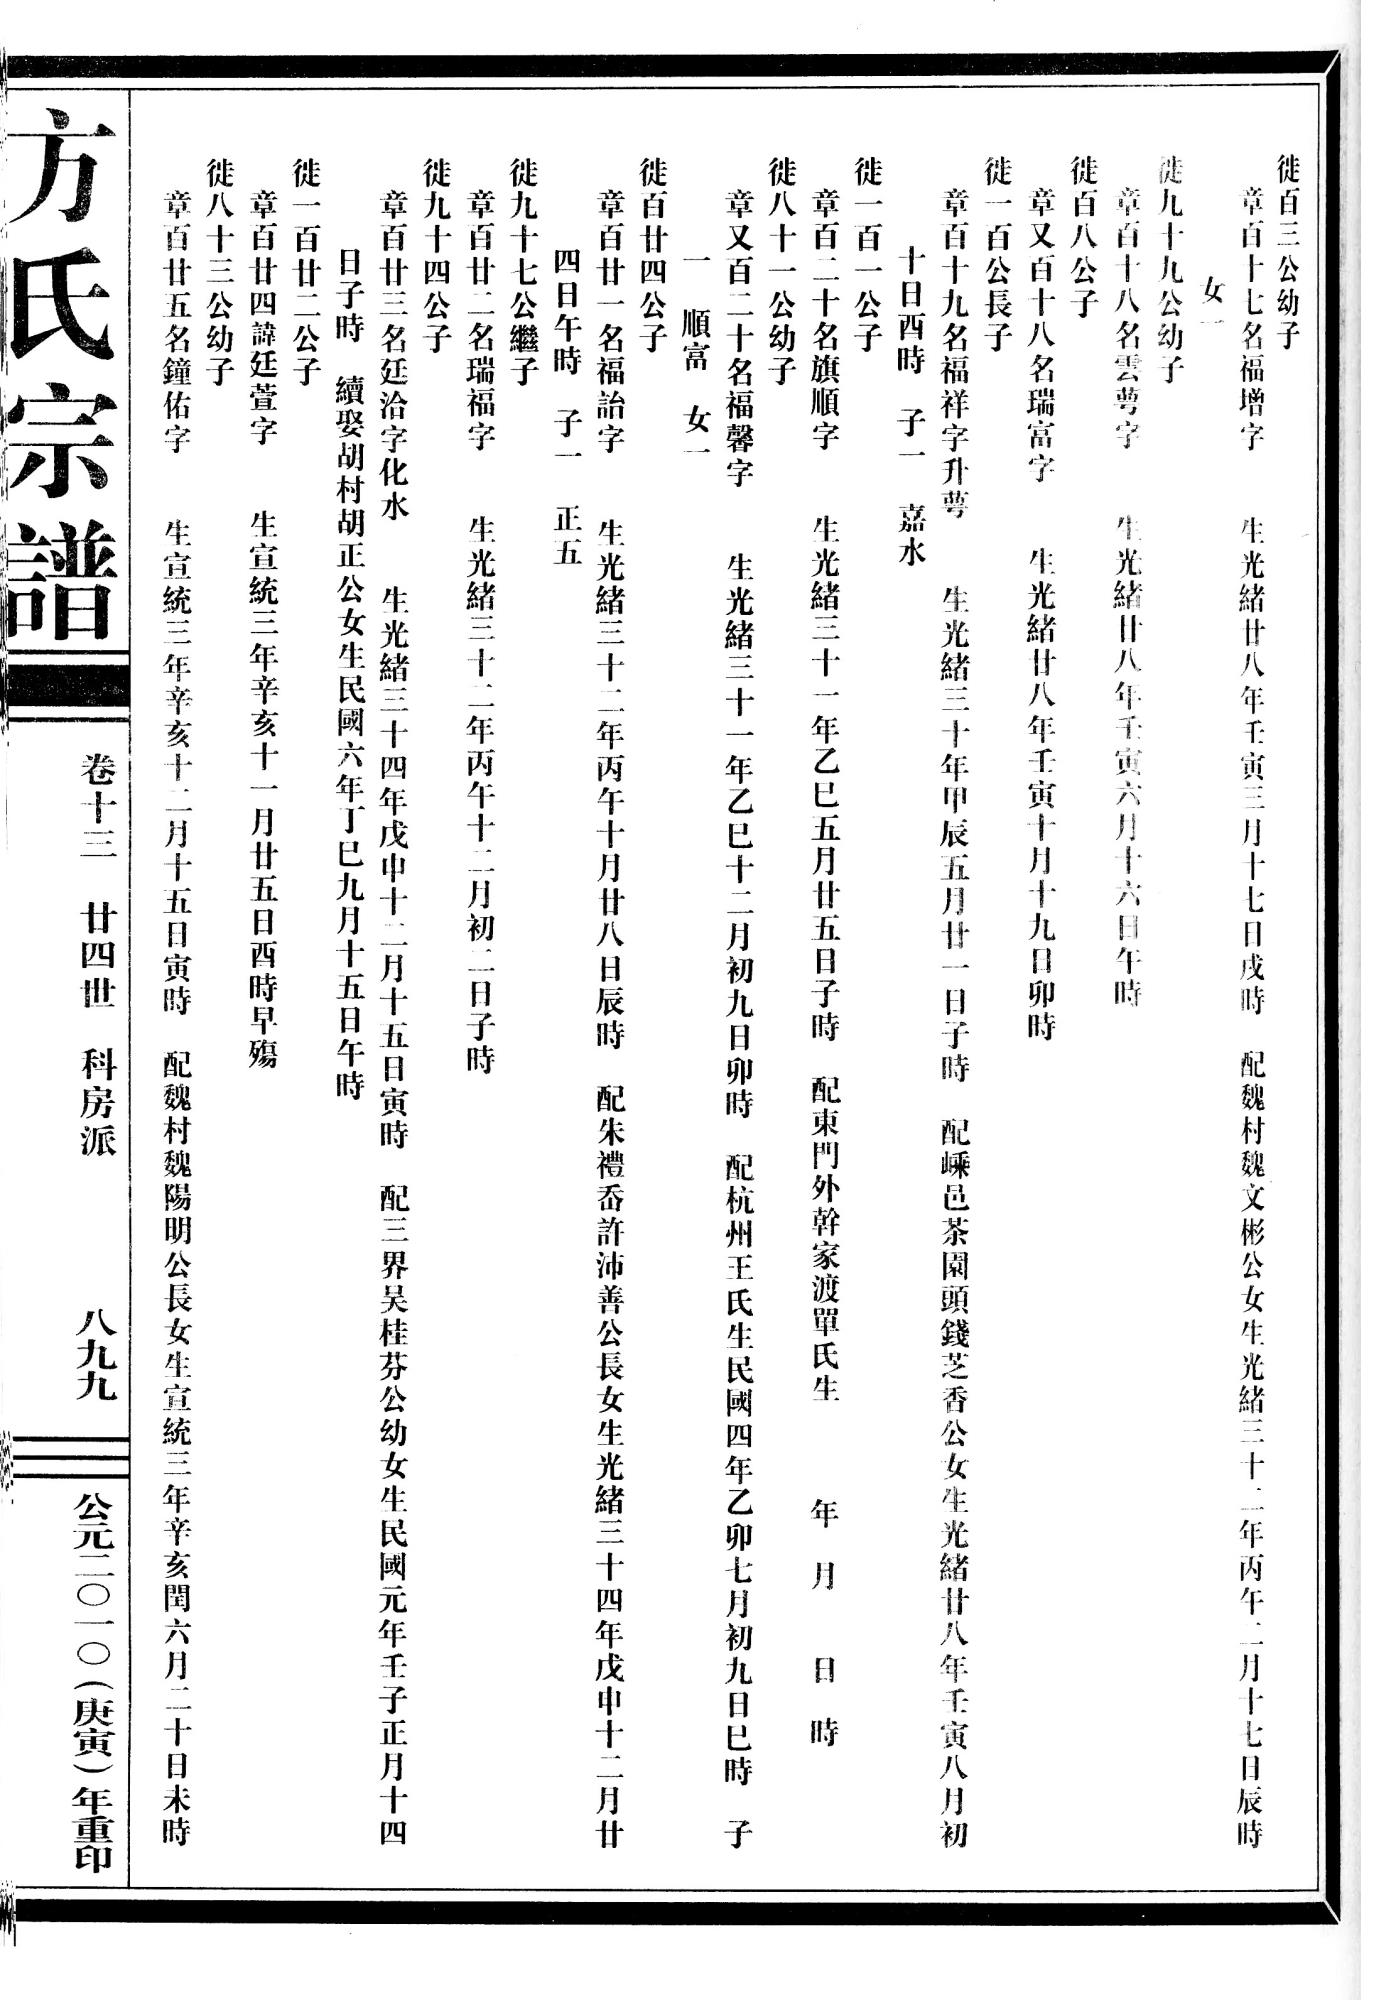 徙百三公幼子
章百十七名福增字 生光緒廿八年壬寅三月十七日戌時 配魏村魏文彬公女生光緒三十二年丙午二月十七日辰時
女一
徙九十九公幼子
章百十八名雲萼字 生光緒廿八年壬寅六月十六日午時
徙百八公子
章又百十八名瑞富字 生光緒廿八年壬寅十月十九日卯時
徙一百公長子
章百十九名福祥字升萼 生光緒三十年甲辰五月廿一日子時 配嵊邑茶園頭錢芝香公女生光緒廿八年壬寅八月初
十日酉時 子一 嘉水
徙一百一公子
章百二十名旗順字 生光緒三十一年乙巳五月廿五日子時 配東門外幹家渡單氏生 年 月 日 時
徙八十一公幼子
章又百二十名福馨字 生光緒三十一年乙巳十二月初九日卯時 配杭州王氏生民國四年乙卯七月初九日巳時 子
一 順富 女一
徙百廿四公子
章百廿一名福詒字 生光緒三十二年丙午十月廿八日辰時 配朱禮岙許沛善公長女生光緒三十四年戊申十二月廿
四日午時 子一 正五
徙九十七公繼子
章百廿二名瑞福字 生光緒三十二年丙午十二月初二日子時
徙九十四公子
章百廿三名廷洽字化水 生光緒三十四年戊申十二月十五日寅時 配三界吴桂芬公幼女生民國元年壬子正月十四
日子時 續娶胡村胡正公女生民國六年丁巳九月十五日午時
徙一百廿二公子
章百廿四諱廷萱字 生宣統三年辛亥十一月廿五日酉時早殤
徙八十三公幼子
章百廿五名鐘佑字 生宣統三年辛亥十二月十五日寅時 配魏村魏陽明公長女生宣統三年辛亥閏六月二十日未時
方氏宗譜
卷十三 廿四世 科房派
八九九
公元二〇一〇(庚寅)年重印